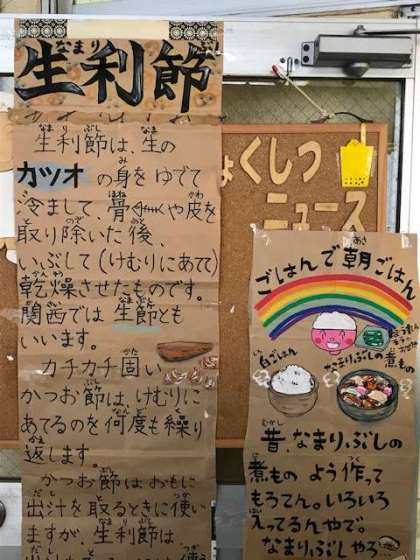 生利節
なまりぶし
生利節は、生の
カツオの身をゆでて
冷まして、骨や皮を
取り除いた後、
いぶして(けむりにあて)
乾燥させたものです。
関西では生節とも
いいます。
カチカチ固い
かつお節は、けむりに
あてるのを何度も繰り
返します。
かつお節はおもに
出汁を取るときに使い
ますが、生利節は、
ょくしつ
ニュース
ごはんで朝ごはん
白ごはん
なまりぶしの煮もの
昔、なまりぶしの
煮もの よう作って
もろてん。いろいろ
入ってるんやで。
なまりぶしやで…